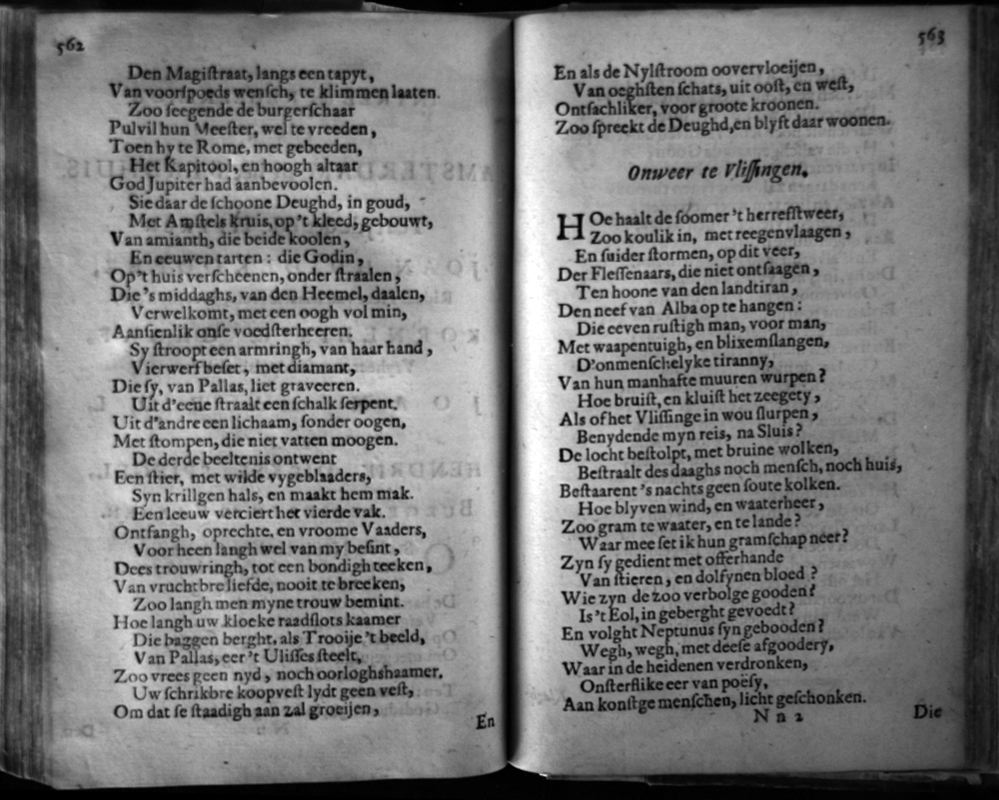 562
Den Magiſtraat, langs een tapyt,
Van voorſpoeds wenſch, te klimmen laaten.
Zoo ſeegende de burgerſchaar
Pulvil hun Meeſter, wel te vreeden,
Toen hy te Rome, met gebeeden,
Het Kapitool, en hoogh altaar
God Jupiter had aanbevoolen.
Sie daar de ſchoone Deughd, in goud,
Met Amſtels kruis, op't kleed, gebouwt,
Van amianth, die beide koolen,
En eeuwen tarten: die Godin,
Op't huis verſcheenen, onder ſtraalen,
Die 's middaghs, van den Heemel, daalen,
Verwelkomt, met een oogh vol min,
Aanſienlik onſe voedſterheeren.
Sy ſtroopt een armringh, van haar hand,
Vierwerf beſet, met diamant,
Die ſy, van Pallas, liet graveeren.
Uit d'eene ſtraalt een ſchalk ſerpent.
Uit d'andre een lichaam, ſonder oogen,
Met ſtompen, die niet vatten moogen.
De derde beeltenis ontwent
Een ſtier, met wilde vygeblaaders,
Syn krillgen hals, en maakt hem mak.
Een leeuw verciert het vierde vak.
Ontfangh, oprechte, en vroome Vaaders,
Voor heen langh wel van my beſint,
Dees trouwringh, tot een bondigh teeken,
Van vruchtbre liefde, nooit te breeken,
Zoo langh men myne trouw bemint.
Hoe langh uw kloeke raadſlots kaamer
Die baggen berght, als Trooije 't beeld,
Van Pallas, eer 't Uliſſes ſteelt,
Zoo vrees geen nyd, noch oorloghshaamer.
Uw ſchrikbre koopveſt lydt geen veſt,
Om dat ſe ſtaadigh aan zal groeijen,
En
563
En als de Nylſtroom oovervloeijen,
Van oeghſten ſchats, uit ooſt, en weſt,
Ontſachliker, voor groote kroonen.
Zoo ſpreekt de Deughd, en blyft daar woonen.
Onweer te Vliſſingen.
HOe haalt de ſoomer 't herrefſtweer,
Zoo koulik in, met reegenvlaagen,
En ſuider ſtormen, op dit veer,
Der Fleſſenaars, die niet ontſaagen,
Ten hoone van den landtiran,
Den neef van Alba op te hangen:
Die eeven ruſtigh man, voor man,
Met waapentuigh, en blixemſlangen,
D'onmenſchelyke tiranny,
Van hun manhafte muuren wurpen?
Hoe bruiſt, en kluiſt het zeegety,
Als of het Vliſſinge in wou ſlurpen,
Benydende myn reis, na Sluis?
De locht beſtolpt, met bruine wolken,
Beſtraalt des daaghs noch menſch, noch huis,
Beſtaarent 's nachts geen ſoute kolken.
Hoe blyven wind, en waaterheer,
Zoo gram te waater, en te lande?
Waar mee ſet ik hun gramſchap neer?
Zyn ſy gedient met offerhande
Van ſtieren, en dolfynen bloed?
Wie zyn de zoo verbolge gooden?
Is 't Eol, in geberght gevoedt?
En volght Neptunus ſyn gebooden?
Wegh, wegh, met deeſe afgoodery,
Waar in de heidenen verdronken,
Onſterflike eer van poëſy,
Aan konſtge menſchen, licht geſchonken.
N n 2
Die